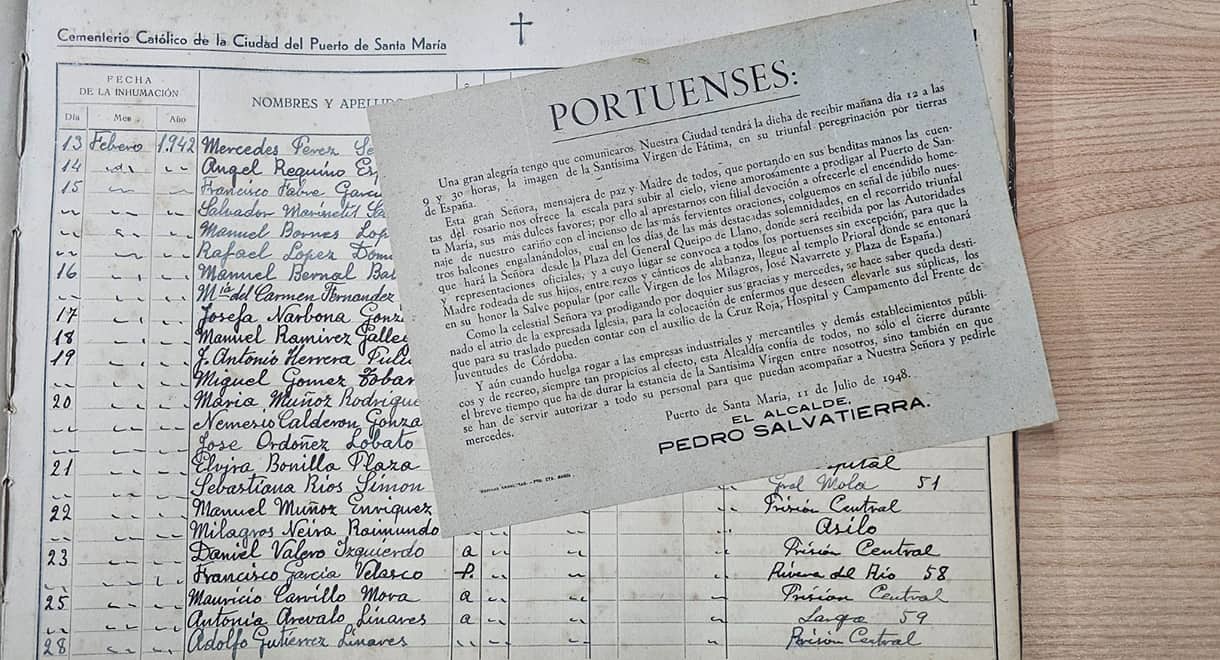 Cementerio Católico de la Ciudad del Puerto de Santa María
FECHA
DE LA INHUMACIÓN
NOMBRES Y APELLIDOS
Día Mes Año
13 Febrero 1942 Mercedes Perez
14 Angel Requino
15 Francisco Fabre
Salvador
Manuel Bornes
Rafael Lopez
16 Manuel Bernal
Mía del Carmen Fernandez
17 Josefa Narbona
18 Manuel Ramirez
19 J. Antonio Herrera
Miguel Gomez
20 Maria Muñoz
Nemesio Calderon
Jose Ordoñez Lobato
21 Elvira Bonilla Plaza
Sebastiana Rios Simon Gral Mola 51
22 Manuel Muñoz Enriquez Prisión Central
Milagros Neira Raimundo Asilo
23 Daniel Valero Izquierdo a Prisión Central
Francisco García Velasco P. Rivera del Río 58
25 Mauricio Carrillo Mora a Prisión Central
Antonia Arevalo Linares a Larga 59
28 Adolfo Gutiérrez Linares Prisión Central
PORTUENSES:
Una gran alegría tengo que comunicaros Nuestra Ciudad tendrá la dicha de recibir mañana día 12 a las
9 y 30 horas, la imagen de la Santísima Virgen de Fátima, en su triunfal peregrinación por tierras
de España.
Esta gran Señora, mensajera de paz y Madre de todos, que portando en sus benditas manos las cuen-
tas del rosario nos ofrece la escala para subir al cielo, viene amorosamente a prodigar al Puerto de San-
ta María, sus más dulces favores; por ello al aprestarnos con filial devoción a ofrecerle el encendido home-
naje de nuestro cariño con el incienso de las más fervientes oraciones, colguemos en señal de júbilo nues-
tros balcones engalanándolos, cual en los días de las más destacadas solemnidades, en el recorrido triunfal
que hará la Señora desde la Plaza del General Queipo de Llano, donde será recibida por las Autoridades
y representaciones oficiales, y a cuyo lugar se convoca a todos los portuenses sin excepción, para que la
Madre rodeada de sus hijos, entre rezos y cánticos de alabanza, llegue al templo Prioral donde se entonará
en su honor la Salve popular (por calle Virgen de los Milagros, José Navarrete y Plaza de España.)
Como la celestial Señora va prodigando por doquier sus gracias y mercedes, se hace saber queda desti-
nado el atrio de la expresada Iglesia, para la colocación de enfermos que deseen elevarle sus súplicas, los
que para su traslado pueden contar con el auxilio de la Cruz Roja, Hospital y Campamento del Frente de
Juventudes de Córdoba.
Y aún cuando huelga rogar a las empresas industriales y mercantiles y demás establecimientos públi-
cos y de recreo, siempre tan propicios al efecto, esta Alcaldía confía de todos, no sólo el cierre durante
el breve tiempo que ha de durar la estancia de la Santísima Virgen entre nosotros, sino también en que
se han de servir autorizar a todo su personal para que puedan acompañar a Nuestra Señora y pedirle
mercedes.
Puerto de Santa María, 11 de Julio de 1948.
EL ALCALDE,
PEDRO SALVATIERRA.